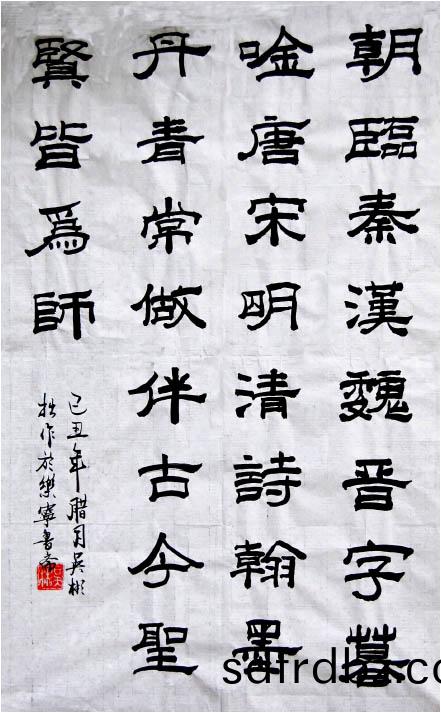 朝臨秦漢魏晋字暮
唫唐宋明清詩翰墨
丹青常做伴古今聖
賢皆爲師
己丑年腊月吴彬
拙作於樂寧書斋